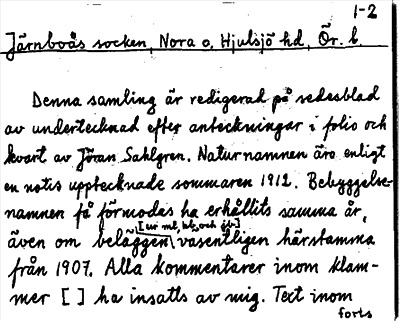 1-2
Järnboås socken, Nora o. Hjulsjö hd, Ör. l.
Denna samling är redigerad på sedesblad
av undertecknad efter anteckningar i folio och
kvart av Jöran Sahlgren. Naturnamnen äro enligt
en notis upptecknade sommaren 1912. Bebyggelse-
namnen få förmodas ha erhållits samma år,
[ur ml, bb, och jb]
även om beläggen väsentligen härstamma
från 1907. Alla kommentarer inom klam-
mer [ ] ha insatts av mig. Text inom
forts